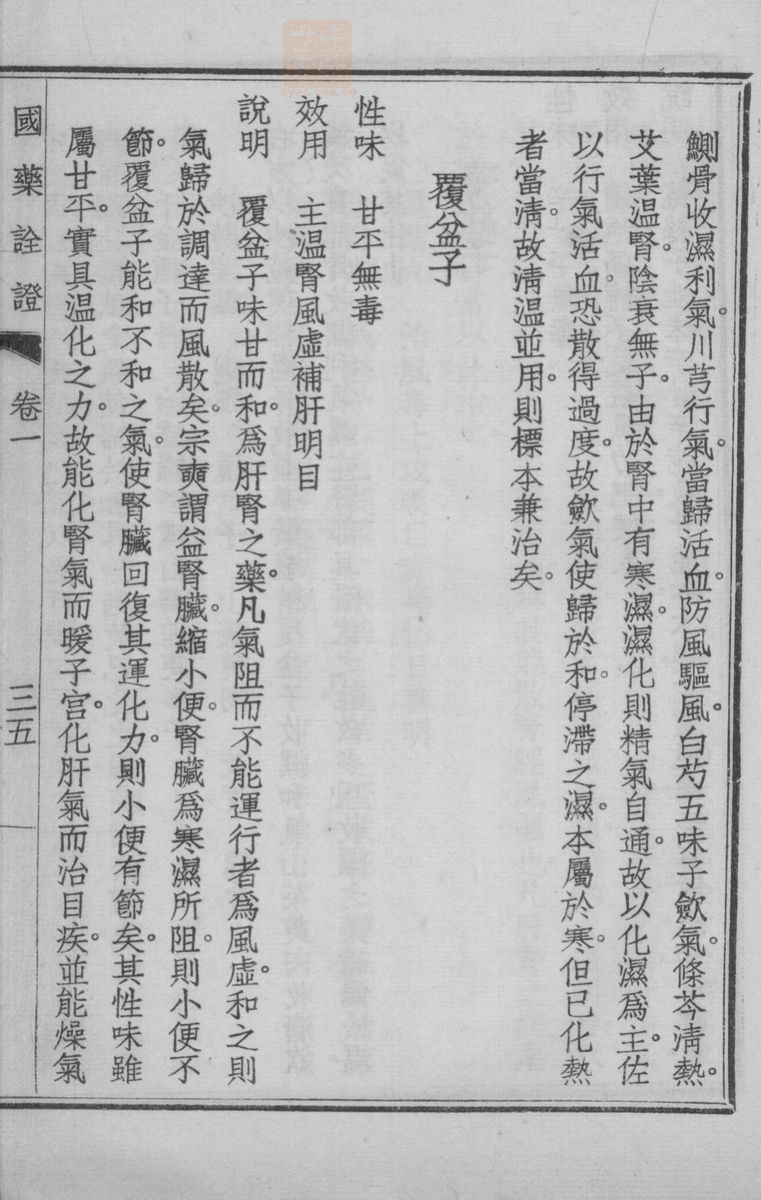 鰂骨收濕利氣。川芎行氣。當歸活血。防風驅風。白芍五味子歛氣。條芩淸熱。
艾葉温腎。陰衰無子。由於腎中有寒濕。濕化則精氣自通。故以化濕爲主。佐
以行氣活血。恐散得過度。故歛氣使歸於和。停滯之濕。本屬於寒。但已化熱
者當淸。故淸温並用。則標本兼治矣。
覆盆子
性味　甘平無毒
效用　主温腎風虛補肝明目
說明　覆盆子味甘而和。爲肝腎之藥。凡氣阻而不能運行者爲風虛。和之則
氣歸於調達而風散矣。宗奭謂益腎臟。縮小便。腎臟爲寒濕所阻。則小便不
節。覆盆子能和不和之氣。使腎臟回復其運化力。則小便有節矣。其性味雖
屬甘平。實具温化之力。故能化腎氣而暖子宫。化肝氣而治目疾。並能燥氣
國藥詮證　卷一　三五